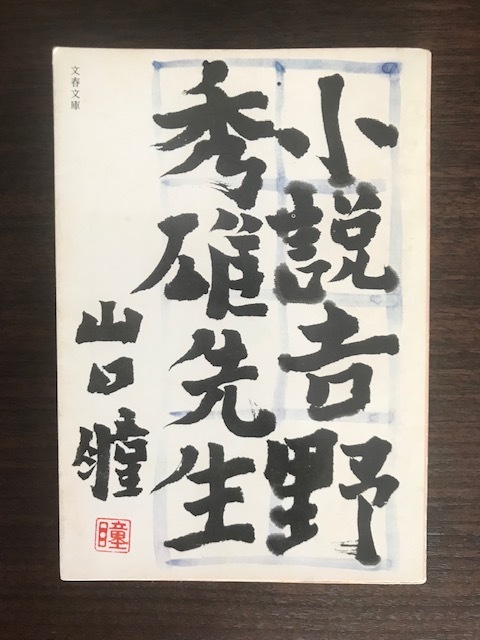 小説吉野
秀雄先生
山口瞳
瞳
文春文庫